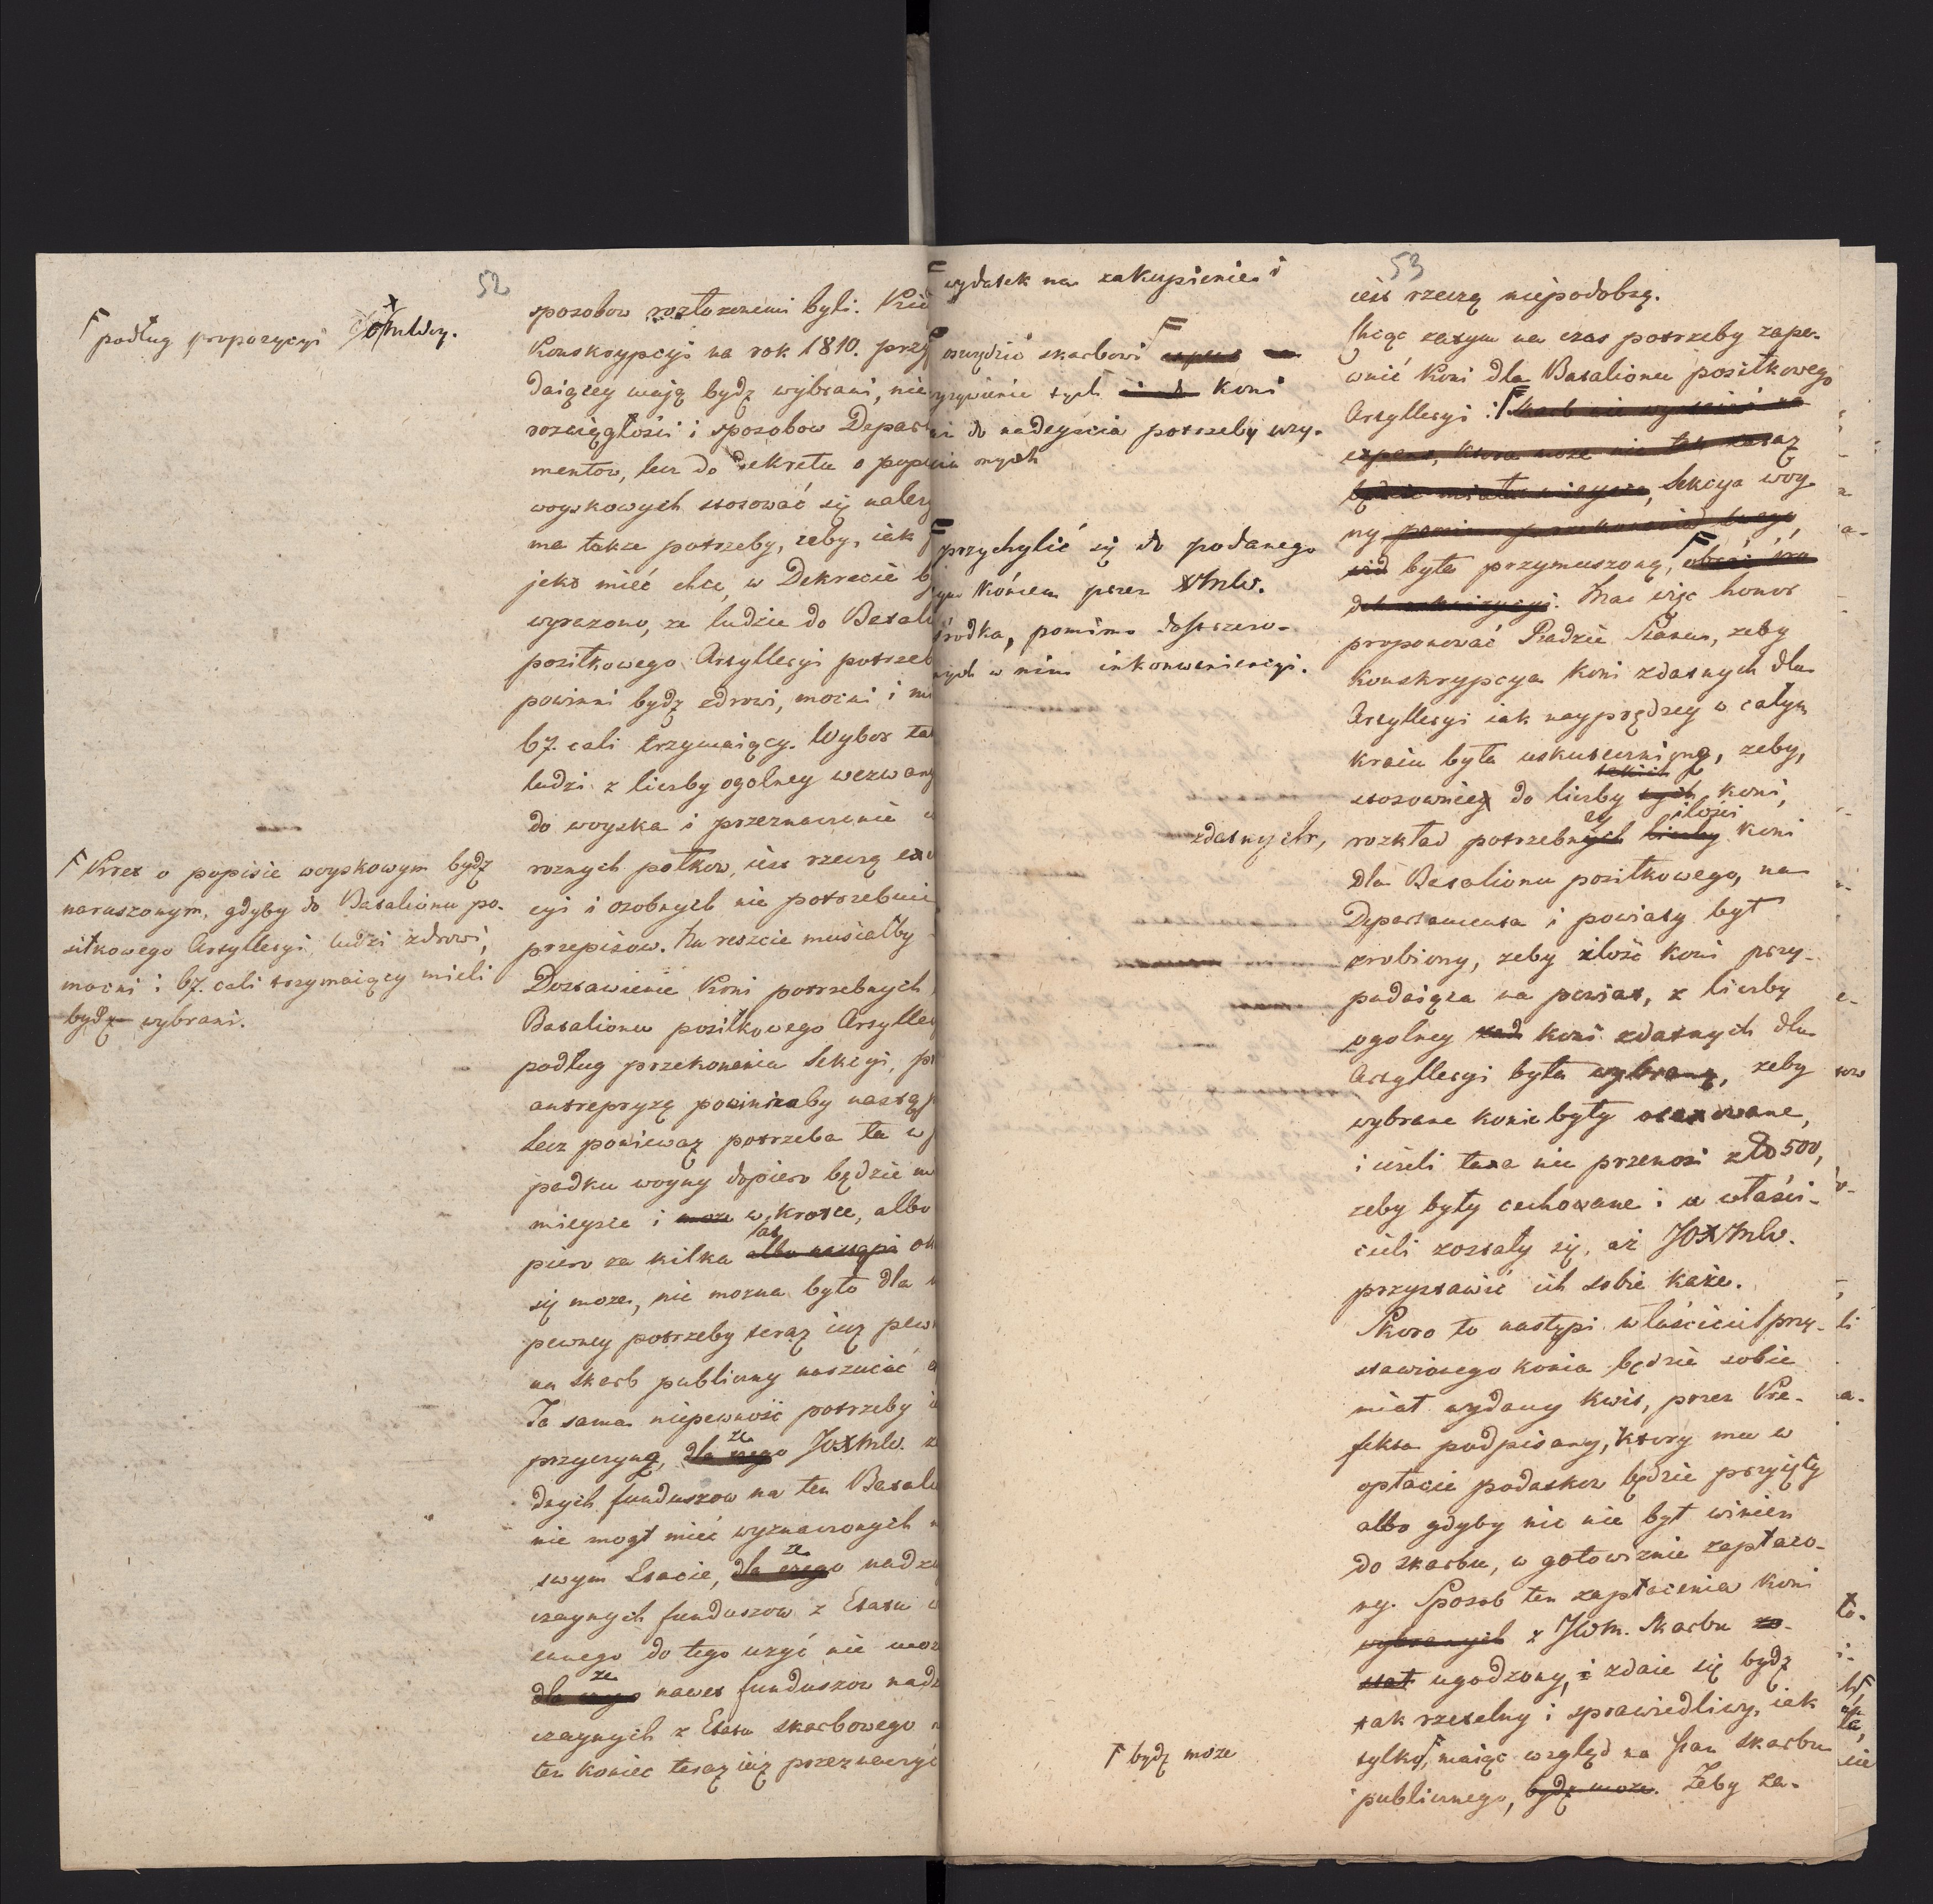 52
F podług propozycyi JOXmlwy.
F Kres o popisie woyskowym bydź
naruszonym, gdyby do Batalionu po-
siłkowego Artylleryi, ludzi zdrowi,
mocni i 67. cali trzymaiący mieli
bydź wybrani.
sposobow rozłożonemi byli.
Konskrypcyi na rok 1810. przy
daiącey mają bydź wybrani, nie
rozciągłości i sposobow Depar
mentow, lecz do Dekretu o popi
woyskowych stosować się należy
ma takze potrzeby, żeby, iak
jeks mieć chce, w Dekrecie
wyrazono, że ludzie do Batali
posiłkowego Artylleryi potrzeb
powinni bydź zdrowi, mocni i
67. cali trzymaiący. Wybor ta
ludzi z liczby ogolney wezwany
do woyska i przeznaczenie
roznych pułkow, iest rzeczą exe
cyi i osobnych nie potrzebuie
przepisow. Na reszcie musiałby
Dostawienie Koni potrzebnych
Batalionu posiłkowego Artylle
podług przekonania Sekcyi,
antrepryzę powinnaby nastąp
lecz ponieważ potrzeba ta w
padku woyny dopiero będzie
mieysce i może w krotce, albo
piero za kilka lat albo nastąpi
się może, nie można było dla
pewney potrzeby teraz iuż pew
na Skarb publiczny narzucać
Ta sama niepewność potrzeby
przyczyną, dla czego że JOXmlw.
dnych funduszow na ten Batal
nie mogł mieć wyznaczonych
swym Etacie, dla czego że nadzw
czaynych funduszow z Etatu
ennego do tego użyć nie moż
dla czego że nawet funduszow nadz
czaynych z Etatu skarbowego
ten koniec teraz iuż przeznaczyć
53
F wydatek na zakupienie i
oszczędzić skarbowi F expens na
wyżywienie tych i do koni
aż do nadeyścia potrzeby uży-
cia onych
F przychylić się do podanego
tym końcem przez XMlw.
środka, pomimo dostrzeżo-
nych w nim inkonweniencyi.
zdatnych,
F bydź może
iest rzeczą niepodobną.
Chcąc zatym na czas potrzeby zape-
wnić Koni dla Batalionu posiłkowego
Artylleryi: F Skarb nie wystawić na
expens, ktora może nie tak zaraz
będzie miała mieysce, Sekcya woy-
ny pomimo przekonania swego,
była przymuszoną, F obrać śro
dek rekwizycyi. Ma więc honor
proponować Radzie Stanu, żeby
Konskrypcya Koni zdatnych dla
Artylleryi iak nayprędzey w całym
kraiu była uskutecznioną, żeby,
stosownie do liczby tych takich koni,
rozkład potrzebnych ey liczby ilości koni
dla Batalionu posiłkowego, na
Departamenta i powiaty był
zrobiony, żeby ilość koni przy-
padaiąca na powiat, z liczby
ogolney koni zdatnych dla
Artylleryi była wybraną, żeby
wybrane konie były otaxowane,
i ieżeli taxa nie przenosi zło 500,
żeby były cechowane i u właści-
cieli zostały się, aż JOXMlw.
przystawić ich sobie każe.
Skoro to nastąpi właściciel przy-
stawionego konia będzie sobie
miał wydany kwit, przez Pre-
fekta podpisany, ktory mu w
opłacie podatkow będzie przyięty
albo gdyby nic nie był winien
do skarbu, w gotowiznie zapłaco-
ny. Sposob ten zapłacenia koni
wybranych z JWm. Skarbu zo-
stał ugodzony, i zdaie się bydź
tak rzetelny i sprawiedliwy, iak
tylko F, maiąc wzgląd na stan skarbu
publicznego, bydź może. Żeby za-